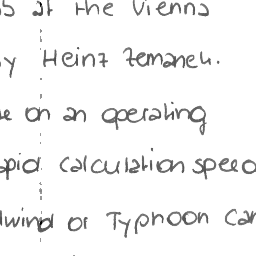 at the Vienna
Heinz Zemanek.
on an operating
calculation speed
or Typhoon can